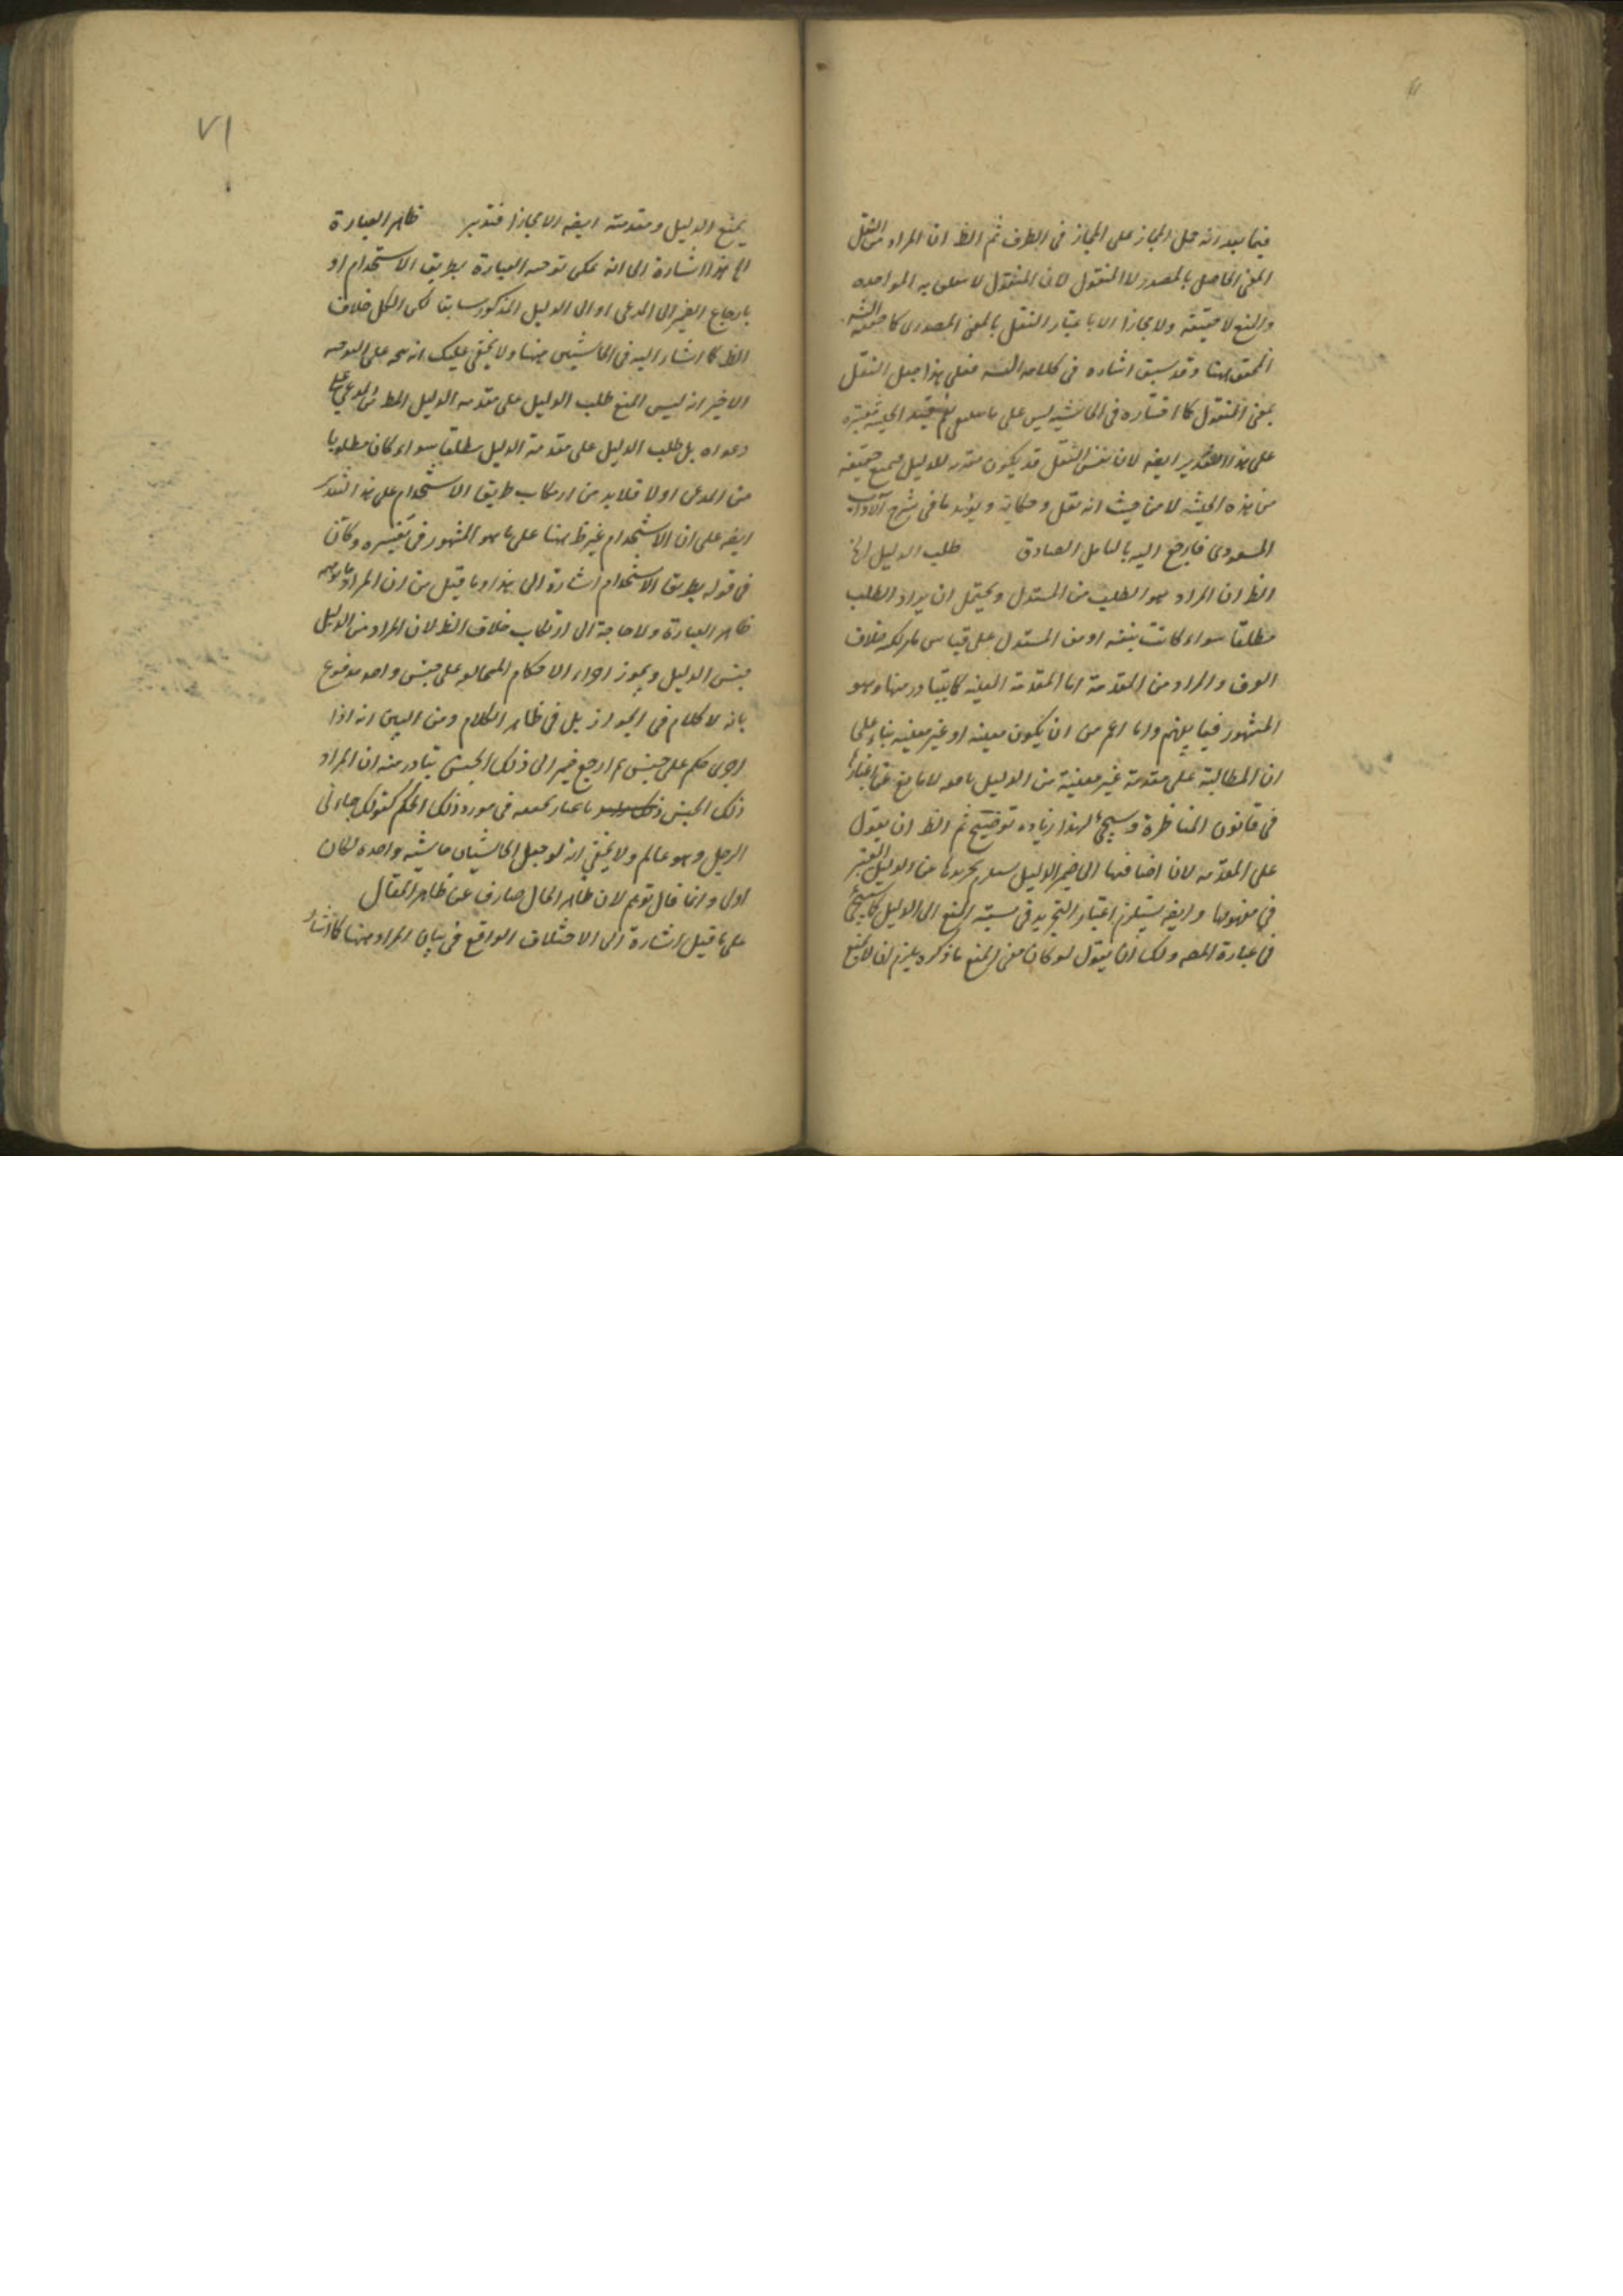 فيما بعد انه حمل المجاز على المجاز في الطرف ثم الظ ان المراد من النقل
المعنى الحاصل بالمصدر لا المنقول لان المنقول لا يتعلق به المواخذه
والمنع لا حقيقة ولا مجازا الا باعتبار النقل بالمعنى المصدري كما حققه
المحقق ههنا وقد سبق اشاره في كلامه فعلى هذا جعل النقل
بمعنى المنقول كما اختاره في الحاشيه ليس على ما ينبغي ثم قيد الحيثية معتبرة
على هذا التقدير ايضه لان نفس النقل قد يكون مقدمه للدليل فيمنع حقيقة
من هذه الحيثية لا من حيث انه نقل وحكاية ويؤيد ما في شرح الآداب
المسعودي فارجع اليه بالتامل الصادق طلب الدليل
الظ ان المراد هو الطلب من المستدل ويحتمل ان يراد الطلب
مطلقا سواء كانت بنفسه او من المستدل على قياس خلاف
العرف والمراد من المقدمة اما المقدمة المعينه كما يتبادر منها وهو
المشهور فيما بينهم واما اعم من ان يكون معينه او غير معينه بناء على
ان المطالبة على مقدمة غير معينة من الدليل لا مانع عن اعتبارها
في قانون المناظرة وسيجئ لهذا زيادة توضيح ثم الظ ان يقول
على المقدمه لان اضافتها الى ضمير الدليل يستلزم تجريدها عن الدليل المعتبر
في مفهومها وايضه يستلزم اعتبار التجريد في نسبة المنع الى الدليل كما سيجئ
في عبارة المصه ولك ان يقول لو كان معنى المنع ما ذكره يلزم ان لا يمنع
٧١
يمنع الدليل ومقدمته ايضه الا مجازا فتدبر ظاهر العبارة
هذا اشارة الى انه يمكن توجيه العبارة بطريق الاستخدام او
بارجاع الضمير الى المدعى او الى الدليل المذكور سابقا لكن الكل خلاف
الظ كما اشار اليه في الحاشيتين ههنا ولا يخفى عليك انه يتجه على التوجيه
الاخير انه ليس المنع طلب الدليل على مقدمه الدليل
دعواه بل طلب الدليل على مقدمة الدليل مطلقا سواء كان مطلوبا
من المدعى اولا فلابد من ارتكاب طريق الاستخدام على هذا التقدير
ايضه على ان الاستخدام غير ظ ههنا على ما هو المشهور في تفسيره وكأن
في قوله بطريق الاستخدام اشارة الى هذا وما قيل من ان المراد
ظاهر العبارة ولا حاجة الى ارتكاب خلاف الظ لان المراد من الدليل
جنس الدليل ويجوز اجراء الاحكام المتخالفه على جنس واحد مدفوع
بانه لا كلام في الجواز بل في ظاهر الكلام ومن البين انه اذا
اجرى حكم على جنس ثم ارجع ضمير الى ذلك الجنس يتبادر منه ان المراد
ذلك الجنس باعتبار تحققه في مورد ذلك الحكم كقولك جاءني
الرجل وهو عالم ولا يخفى انه لو جعل الحاشيتان حاشية واحدة لكان
اولى وانما قال توهم لان ظاهر الحال صارف عن ظاهر المقال
على ما قيل اشارة الى الاختلاف الواقع في بيان المراد ههنا كما اشار